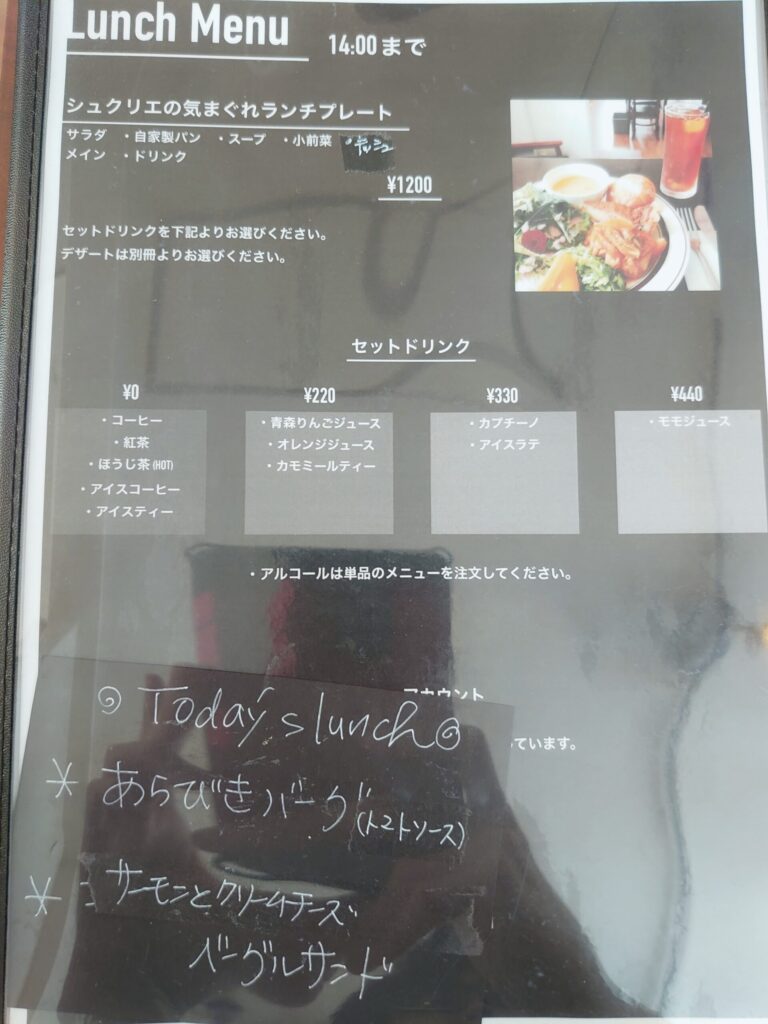 Lunch Menu 14:00まで
シュクリエの気まぐれランチプレート
サラダ ・自家製パン ・スープ ・小前菜 ・キッシュ
メイン ・ドリンク
¥1200
セットドリンクを下記よりお選びください。
デザートは別冊よりお選びください。
セットドリンク
¥0
・コーヒー
・紅茶
・ほうじ茶(HOT)
・アイスコーヒー
・アイスティー
¥220
・青森りんごジュース
・オレンジジュース
・カモミールティー
¥330
・カプチーノ
・アイスラテ
¥440
・モモジュース
・アルコールは単品のメニューを注文してください。
アカウント
っています。
Today's lunch
あらびきバーグ(トマトソース)
サーモンとクリームチーズ
ベーグルサンド